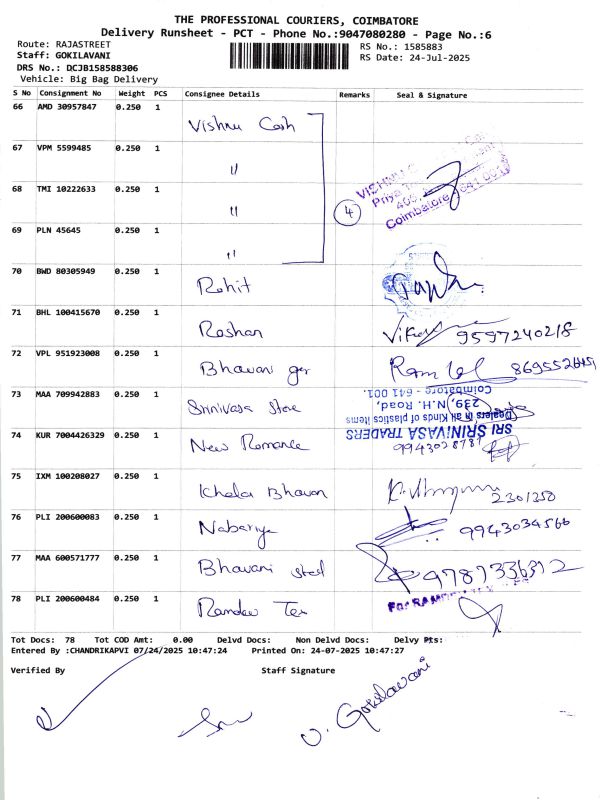 THE PROFESSIONAL COURIERS, COIMBATORE
Delivery Runsheet - PCT - Phone No.:9047080280 - Page No.:6
Route: RAJASTREET
Staff: GOKILAVANI
DRS No.: DCJB158588306
Vehicle: Big Bag Delivery
RS No.: 1585883
RS Date: 24-Jul-2025
S No Consignment No Weight PCS Consignee Details Remarks Seal & Signature
66 AMD 30957847 0.250 1 Vishnu Cash
67 VPM 5599485 0.250 1 "
68 TMI 10222633 0.250 1 " 4
Coimbatore
69 PLN 45645 0.250 1 "
70 BWD 80305949 0.250 1 Rohit
71 BHL 100415670 0.250 1 Roshan 9597240218
72 VPL 951923008 0.250 1 Bhavani Ram Lal
73 MAA 709942883 0.250 1 Srinivasa Store
SRI SRINIVASA TRADERS
Dealers in all Kinds of plastics Items
239, N.H. Road,
Coimbatore - 641 001.
74 KUR 7004426329 0.250 1 New Romance
75 IXM 100208027 0.250 1 Bhavan 2301350
76 PLI 200600083 0.250 1 9943034566
77 MAA 600571777 0.250 1 Bhavani 9787336312
78 PLI 200600484 0.250 1 Tex
For
Tot Docs: 78 Tot COD Amt: 0.00 Delvd Docs: Non Delvd Docs: Delvy Pts:
Entered By :CHANDRIKAPVI 07/24/2025 10:47:24 Printed On: 24-07-2025 10:47:27
Verified By Staff Signature
Gokilavani